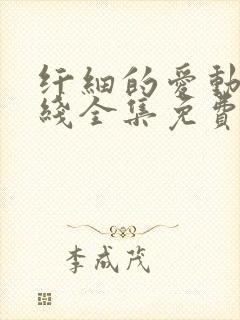 纤細的愛動
綫全集免費
李成茂